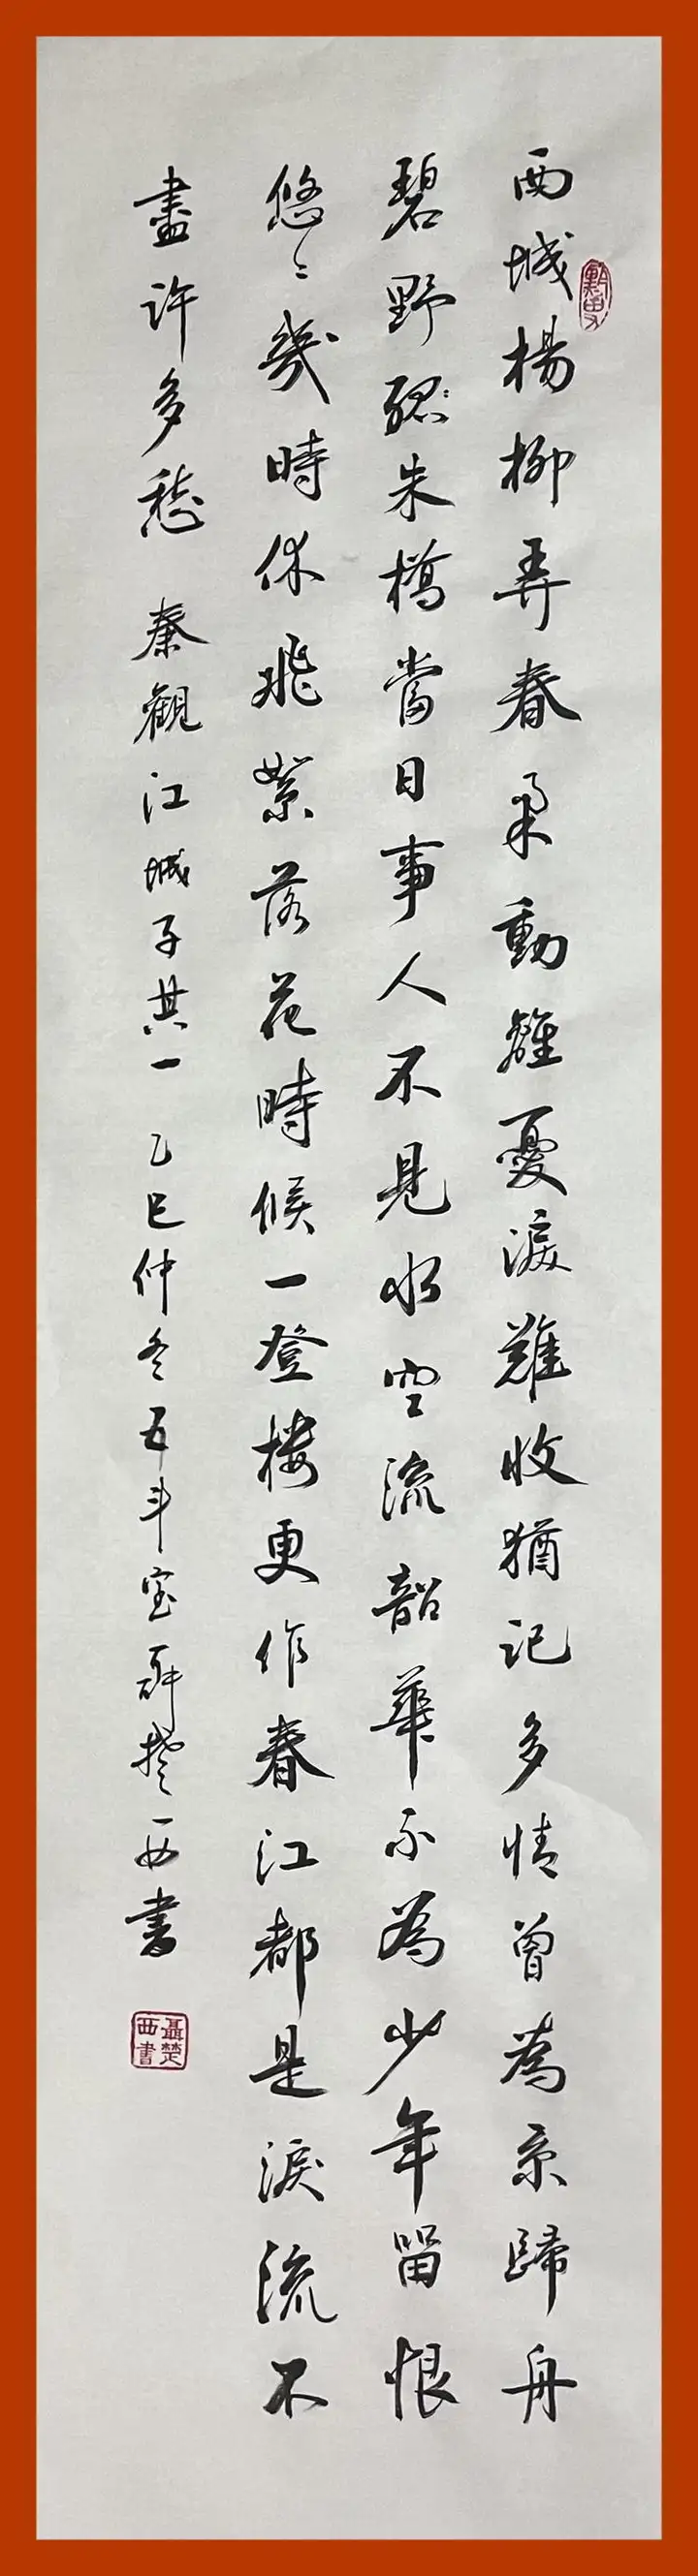 西城楊柳弄春柔動離憂淚難收猶記多情曾為系歸舟
碧野朱橋當日事人不見水空流韶華不為少年留恨
悠々幾時休飛絮落花時候一登樓更作春江都是淚流不
盡許多愁 秦觀江城子其一 乙巳仲冬五斗室聶楚西書
聶楚西書